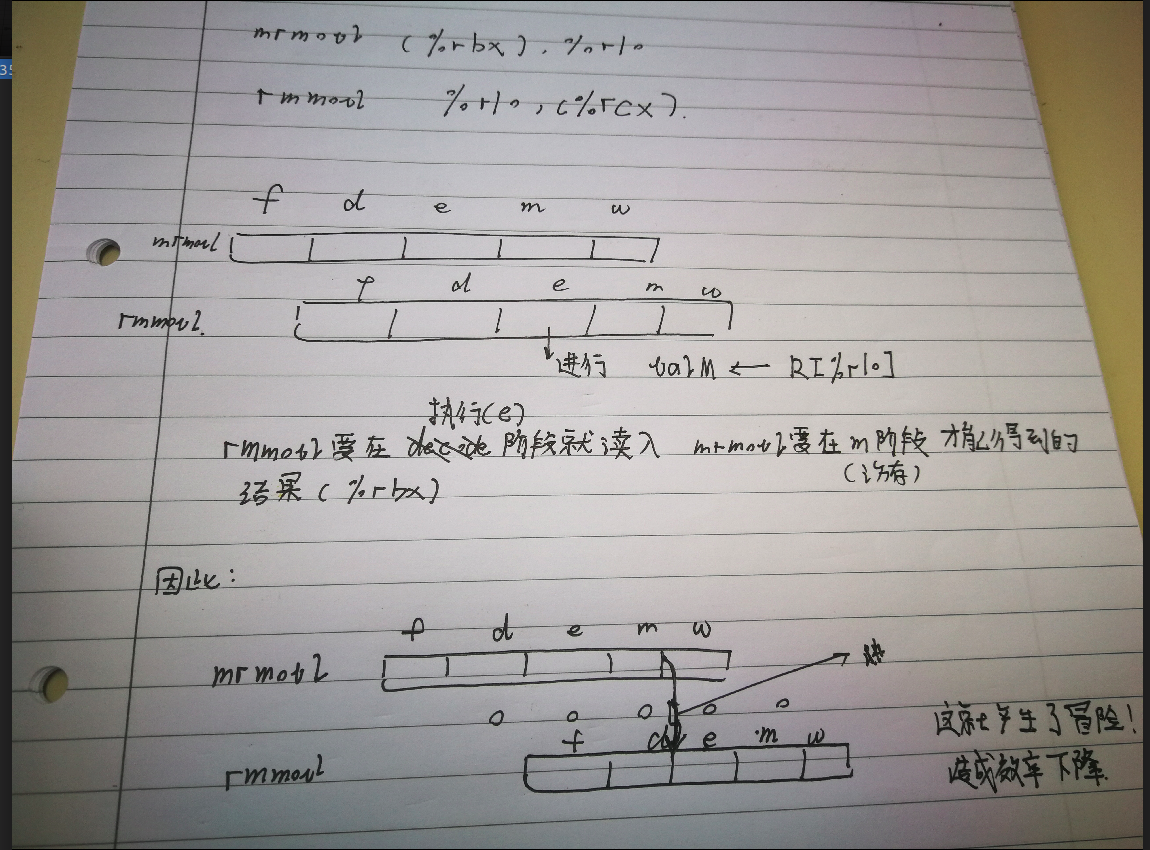 mrmovl (%rbx), %r10
rmmovl %r10, (%rcx).
f d e m w
mrmovl
f d e m w
rmmovl.
进行 valM ← R[%r10]
执行(e)
rmmovl要在 decode 阶段就读入 mrmovl要在m阶段才能得到的
(访存)
结果(%rbx)
因此:
f d e m w
mrmovl
o o o o o
f d e m w
rmmovl
这就产生了冒险!
造成效率下降.